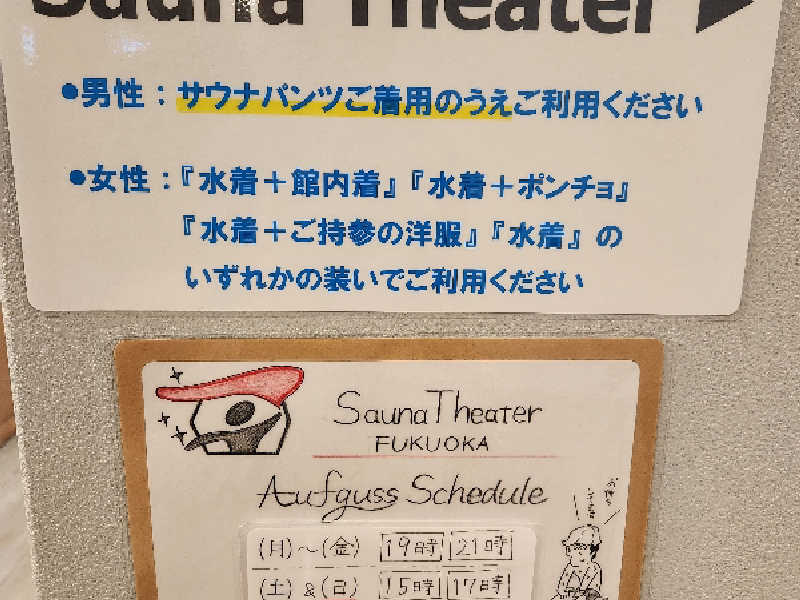 Sauna Theater
●男性：サウナパンツご着用のうえご利用ください
●女性：『水着＋館内着』『水着＋ポンチョ』
『水着＋ご持参の洋服』『水着』の
いずれかの装いでご利用ください
Sauna Theater
FUKUOKA
Aufguss Schedule
(月)～(金) 19時 21時
(土)&(日) 15時 17時